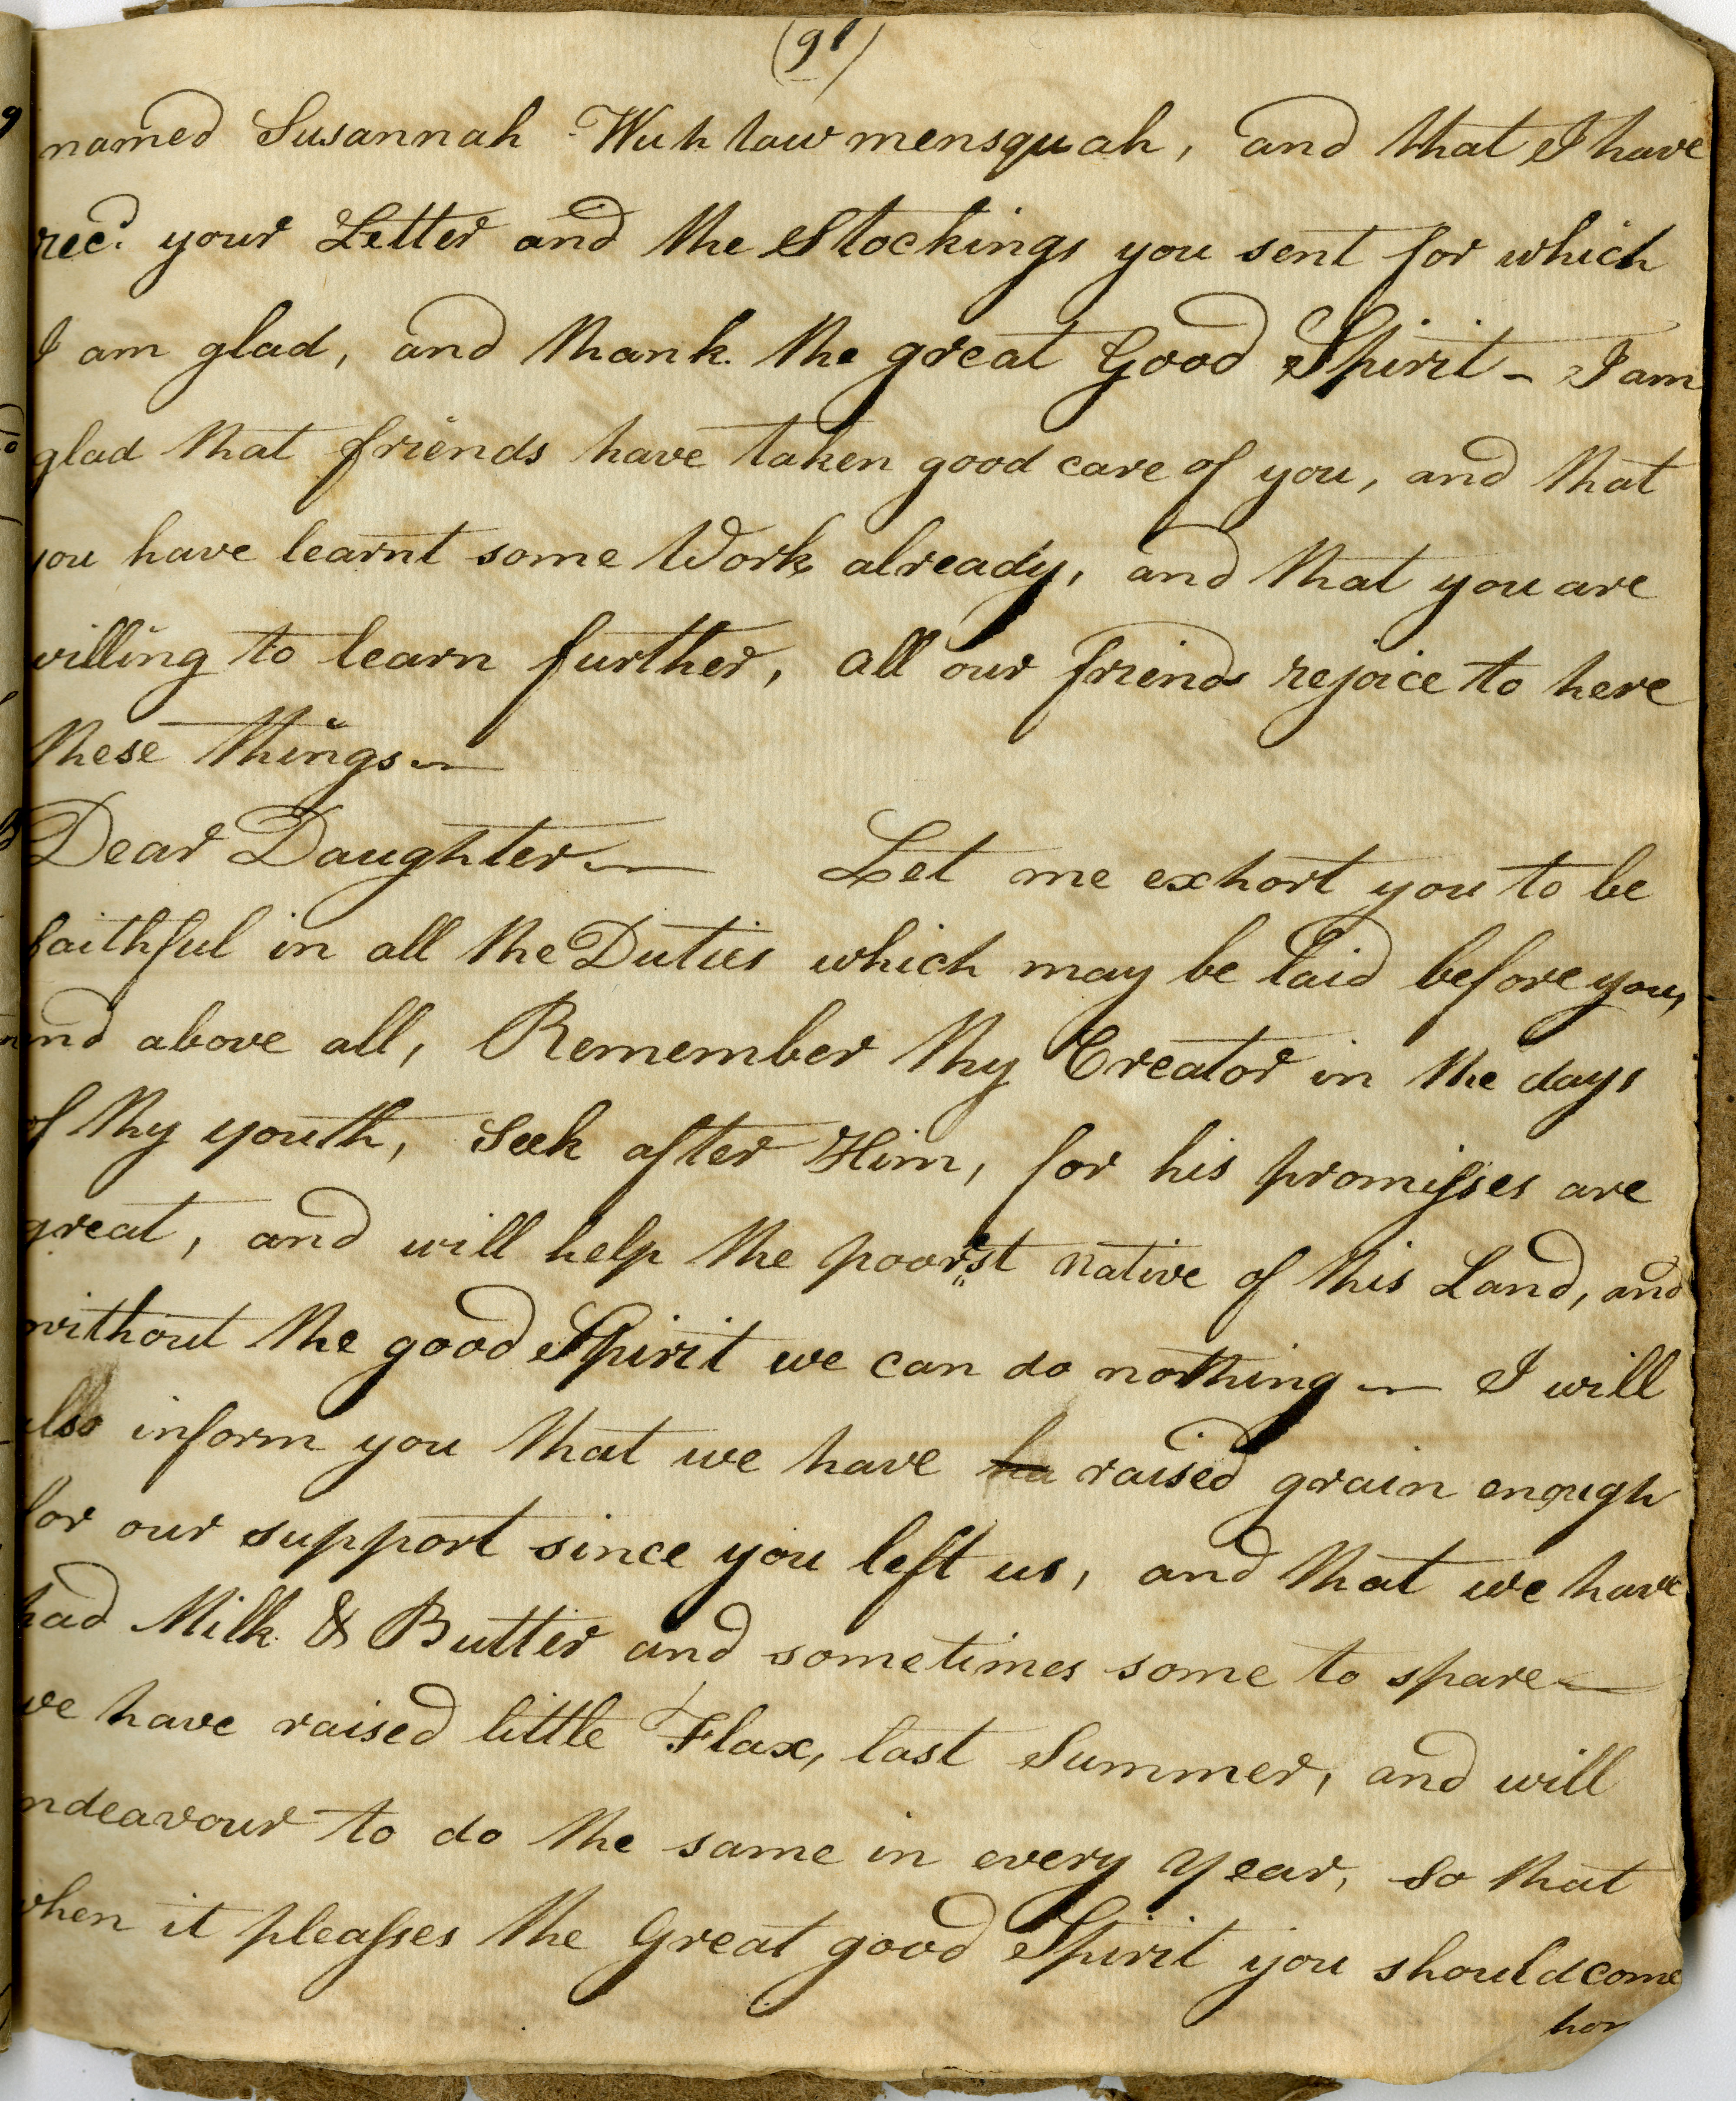 (91)
named Susannah Wuhtawmensquah, and that I have
rec.d your Letter and the Stockings you sent for which
I am glad, and thank the great Good Spirit - I am
glad that friends have taken good care of you, and that
you have learnt some Work already, and that you are
willing to learn further, all our friends rejoice to here
these things —
Dear Daughter — Let me exhort you to be
faithful in all the Duties which may be laid before you,
and above all, Remember thy Creator in the days
of thy youth, Seek after Him, for his promisses are
great, and will help the poorest native of this Land, and
without the good Spirit we can do nothing — I will
also inform you that we have ha raised grain enough
for our support since you left us, and that we have
had Milk & Butter and sometimes some to spare —
we have raised little Flax, last Summer, and will
endeavour to do the same in every year, so that
when it pleasses the Great good Spirit you should come
hom